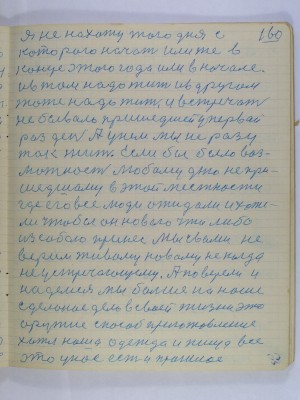 Я не нахожу того дня с 160
которого начат или же в
конце этого года или в начале.
и в том надо жит и в другом
тоже надо жит и встречат
не бывало пришедшей у первай
раз ден А у нем мы не разу
так жит. Если бы была воз-
можност любаму
шедшему в этой местности
где его все люди ожидали
ли что бы он нового что либо
из собою принес мы с вами не
верим живому новому не когда
не
надемся мы больше на наше
сделоное дело в своей жизни это
оружие способ приготовление
хотя наша одежда и пища все
это у нас ест и прошлое